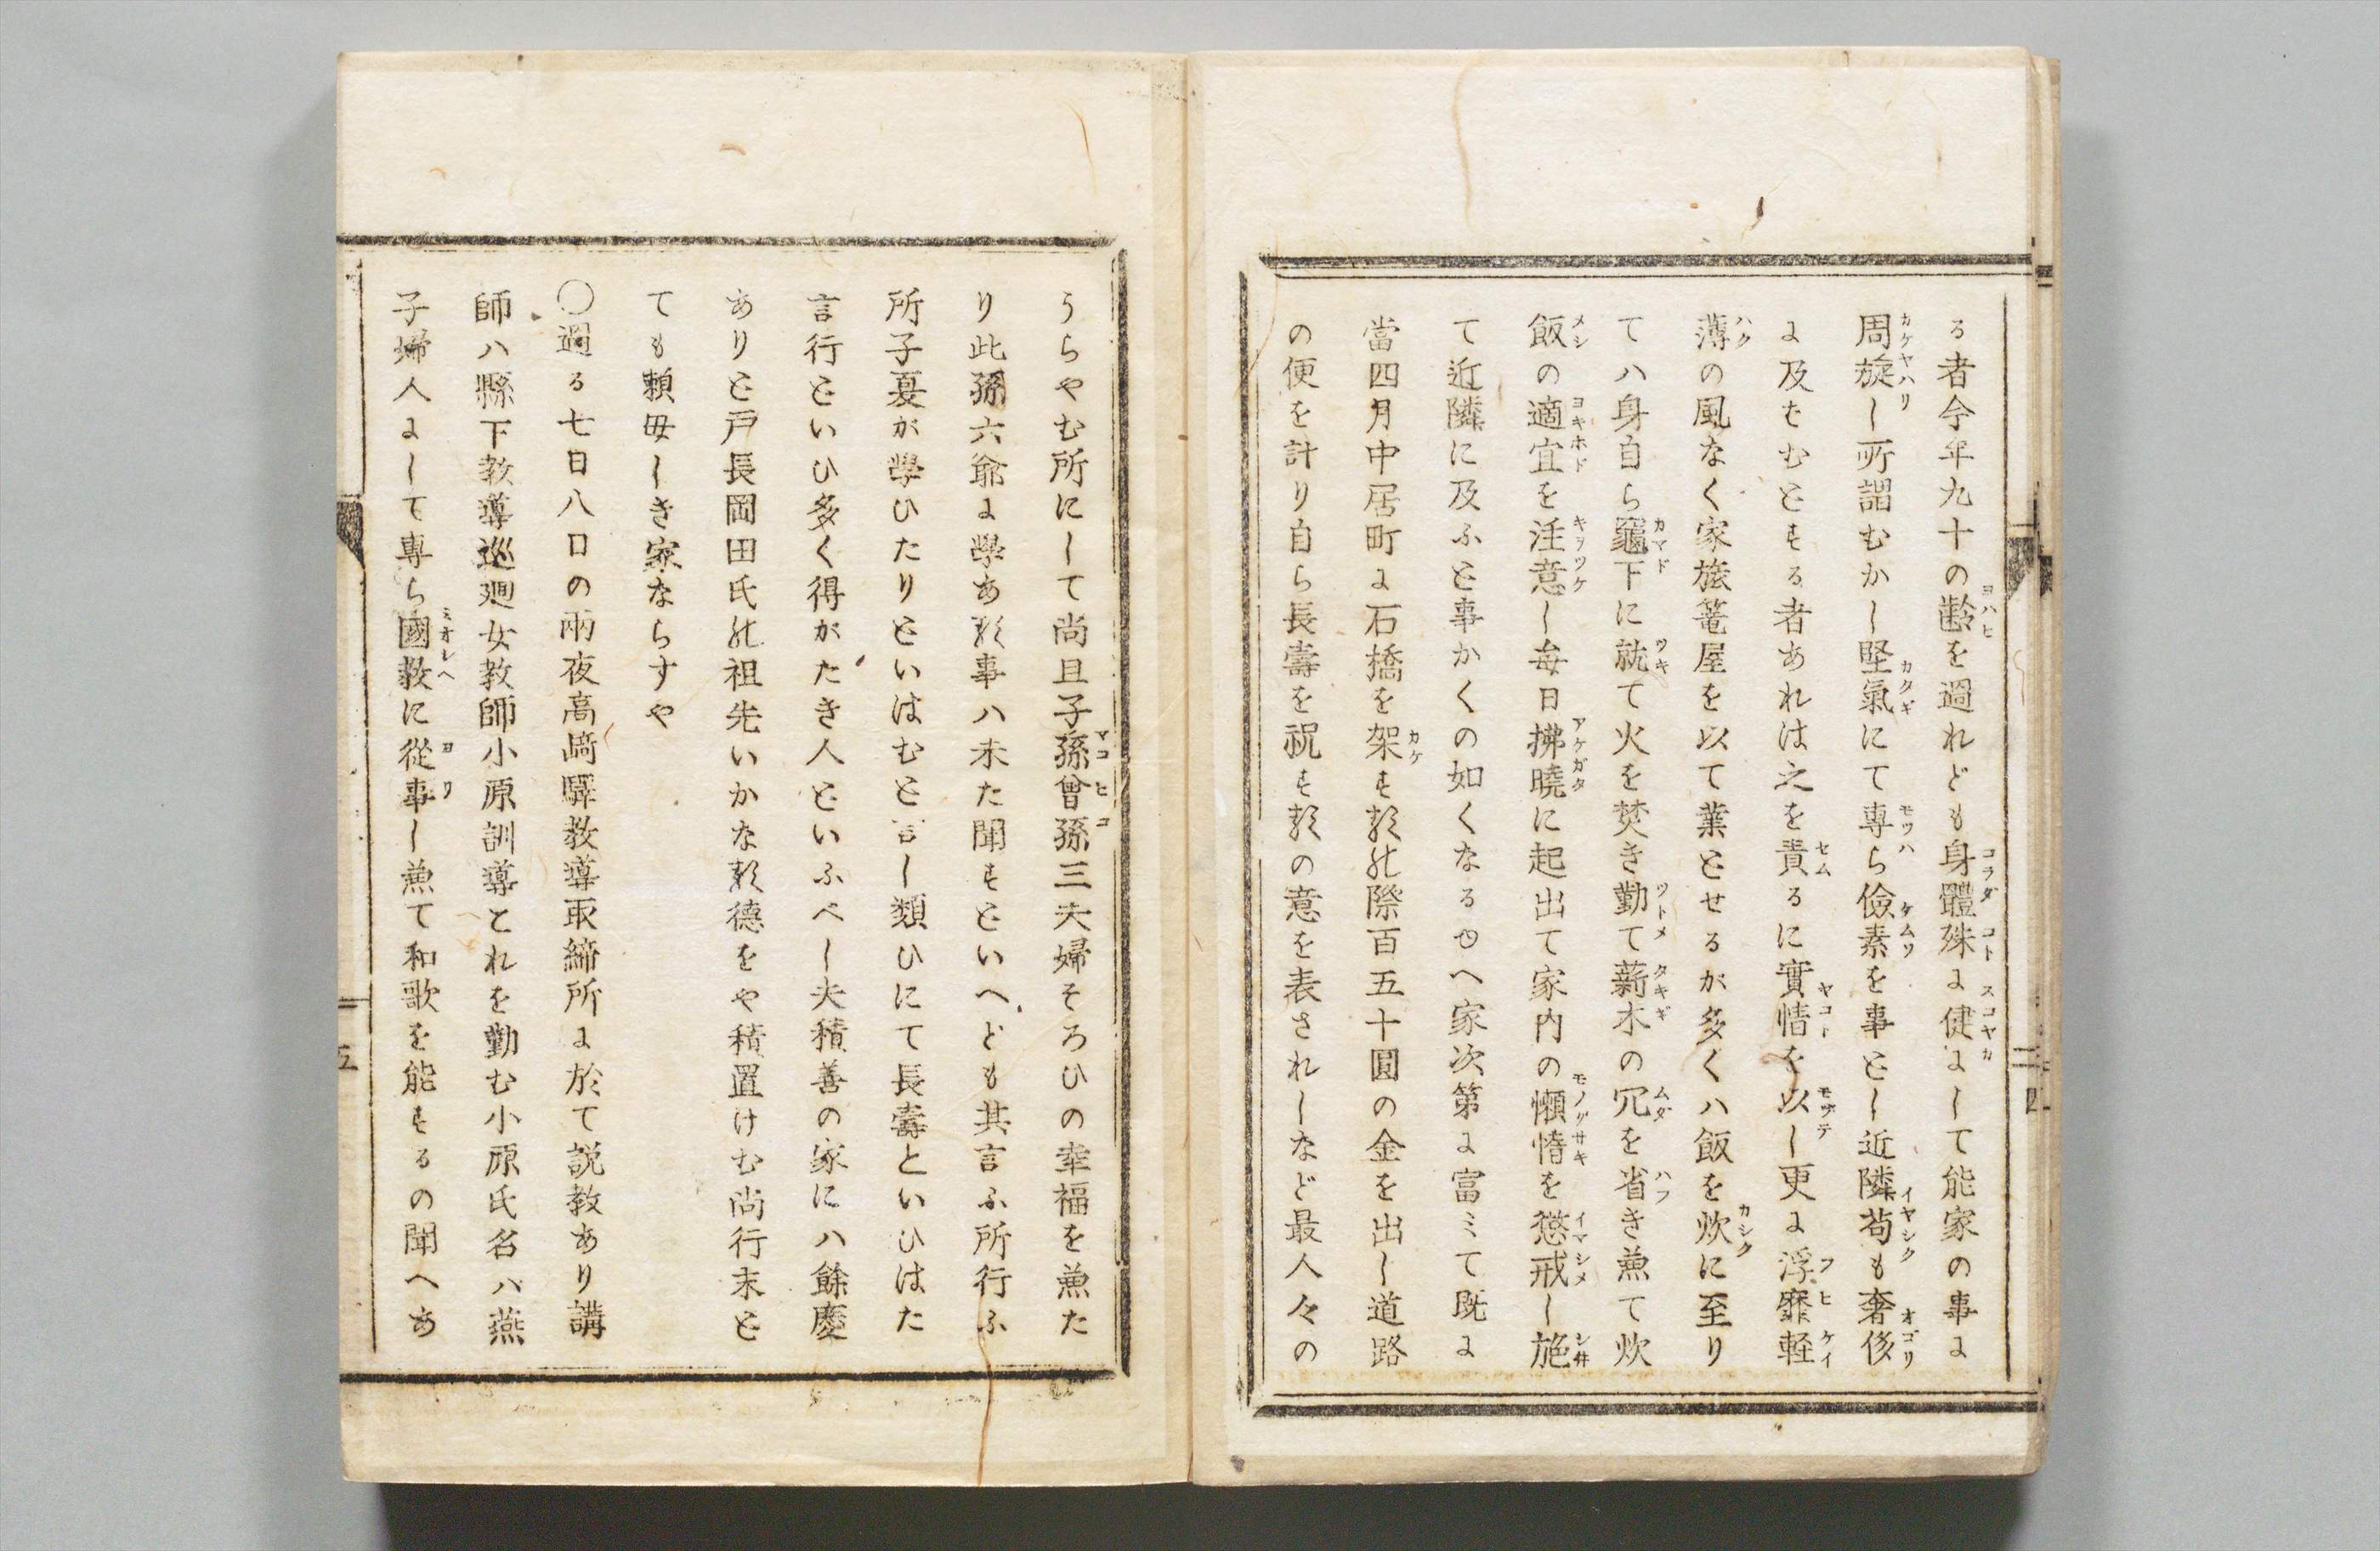 る者今年九十の齢を過れども身體殊に健にして能家の事に
周旋し所謂むかし堅氣にて専ら儉素を事とし近隣苟も奢侈
に及むとする者あれは之を責るに實情を以し更に浮靡軽
薄の風なく家旅篭屋を以て業とせるが多くハ飯を炊に至り
てハ身自ら竈下に就て火を焚き勤て薪木の冗を省き兼て炊
飯の適宜を注意し毎日拂曉に起出て家内の懶惰を懲戒し施
て近隣に及ふと事かくの如くなるゆへ家次第に富ミて既に
當四月中居町に石橋を架する際百五十圓の金を出し道路
の便を計り自ら長壽を祝するの意を表されしなど最人々の
うらやむ所にして尚且子孫曾孫三夫婦そろひの幸福を兼た
り此孫六爺に學ある事ハ未た聞すといへども其言ふ所行ふ
所子夏が學ひたりといはむと言し類ひにて長壽といひはた
言行といひ多く得がたき人といふべし夫積善の家にハ餘慶
ありと戸長岡田氏の祖先いかなる德をや積置けむ尚行末と
ても頼母しき家ならすや
〇過る七日八日の兩夜高崎驛教導取締所に於て説教あり講
師ハ縣下教導巡廻女教師小原訓導とれを勤む小原氏名ハ燕
子婦人にして專ら國教に從事し兼て和歌を能するの聞へあ
四
五